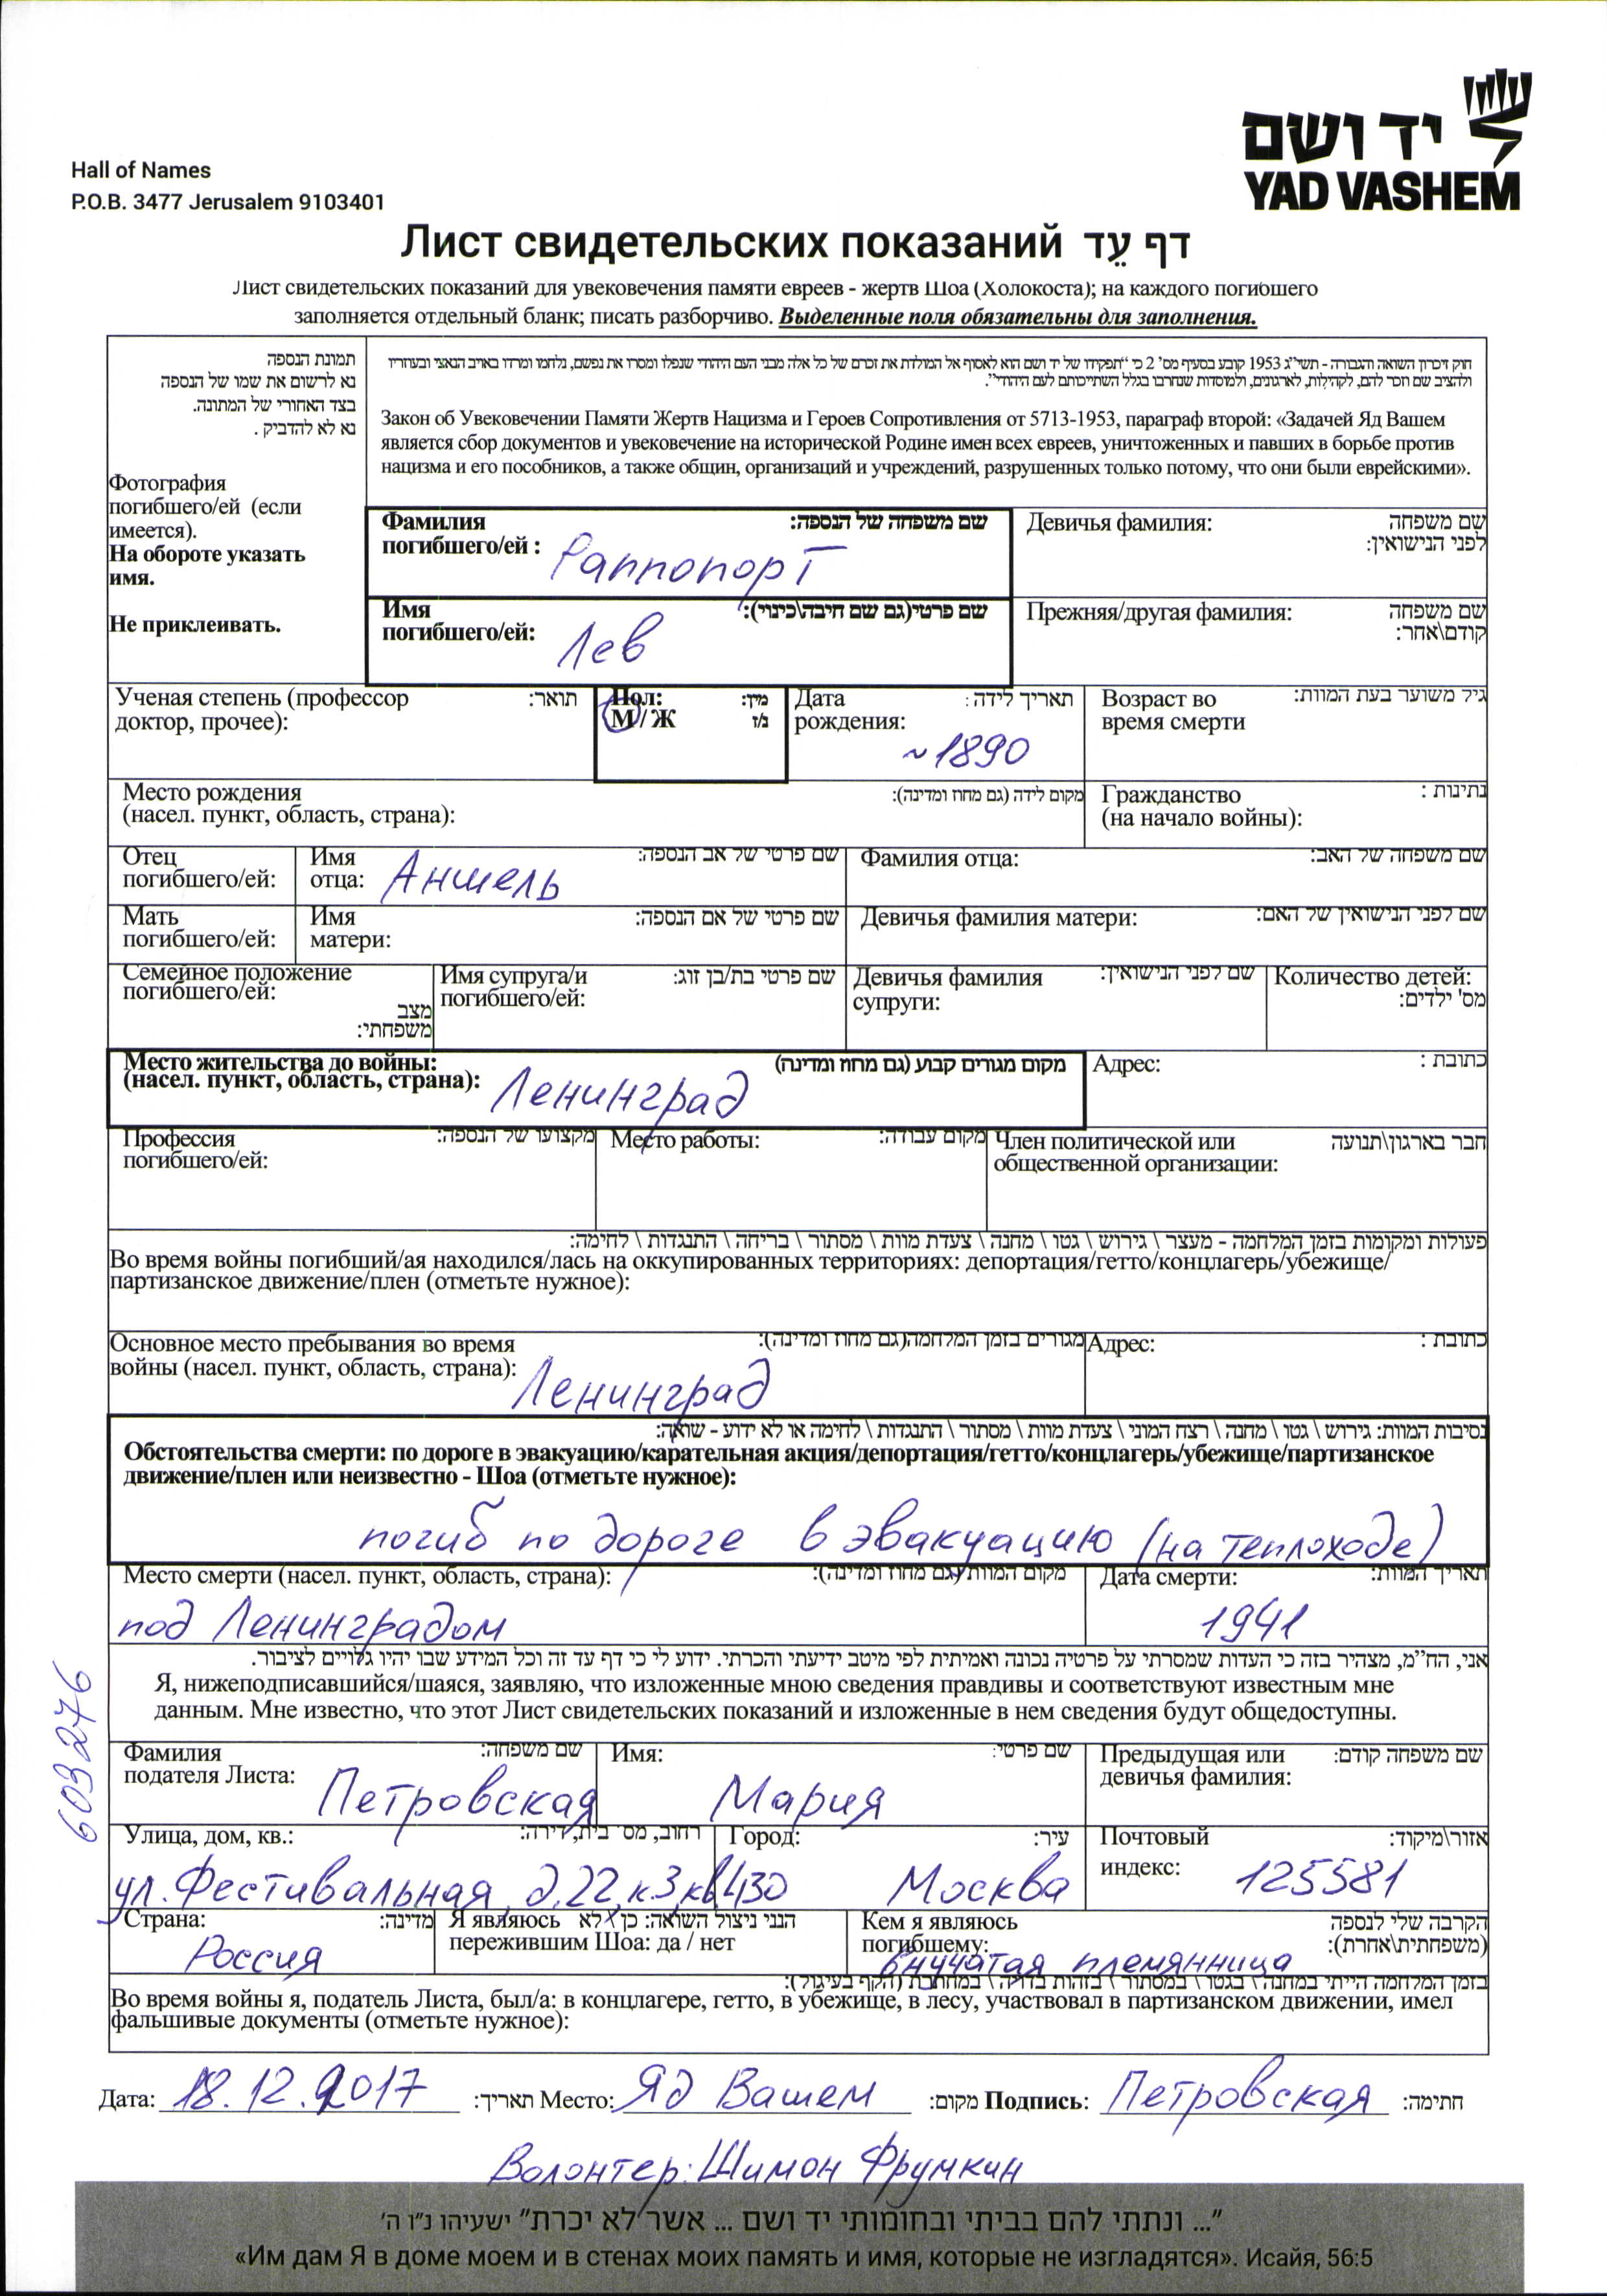 יד ושם
YAD VASHEM
Hall of Names
P.O.B. 3477 Jerusalem 9103401
Лист свидетельских показаний דף עֵד
Лист свидетельских показаний для увековечения памяти евреев - жертв Шоа (Холокоста); на каждого погибшего
заполняется отдельный бланк; писать разборчиво. Выделенные поля обязательны для заполнения.
תמונת הנספה
נא לרשום את שמו של הנספה
בצד האחורי של המתונה.
נא לא להדביק .
Фотография
погибшего/ей (если
имеется).
На обороте указать
имя.
Не приклеивать.
חוק זיכרון השואה והגבורה - תשי"ג 1953 קובע בסעיף מס' 2 כי "תפקידו של יד ושם הוא לאסוף אל המולדת את זכרם של כל אלה מבני העם היהודי שנפלו ומסרו את נפשם, נלחמו ומרדו באויב הנאצי ובעוזריו
ולהציב שם וזכר להם, לקהילות, לארגונים, ולמוסדות שנחרבו בגלל השתייכותם לעם היהודי".
Закон об Увековечении Памяти Жертв Нацизма и Героев Сопротивления от 5713-1953, параграф второй: «Задачей Яд Вашем
является сбор документов и увековечение на исторической Родине имен всех евреев, уничтоженных и павших в борьбе против
нацизма и его пособников, а также общин, организаций и учреждений, разрушенных только потому, что они были еврейскими».
Фамилия שם משפחה של הנספה:
погибшего/ей : Раппопорт
Девичья фамилия: שם משפחה
לפני הנישואין:
Имя שם פרטי(גם שם חיבה\כינוי):
погибшего/ей: Лев
Прежняя/другая фамилия: שם משפחה
קודם\אחר:
Ученая степень (профессор תואר:
доктор, прочее):
Пол: מין:
М / Ж ז/נ
Дата תאריך לידה :
рождения: ~1890
Возраст во גיל משוער בעת המוות:
время смерти
Место рождения מקום לידה (גם מחוז ומדינה):
(насел. пункт, область, страна):
Гражданство נתינות :
(на начало войны):
Отец
погибшего/ей:
Имя שם פרטי של אב הנספה:
отца: Аншель
Фамилия отца: שם משפחה של האב:
Мать
погибшего/ей:
Имя שם פרטי של אם הנספה:
матери:
Девичья фамилия матери: שם לפני הנישואין של האם:
Семейное положение
погибшего/ей:
מצב
משפחתי:
Имя супруга/и שם פרטי בת/בן זוג:
погибшего/ей:
Девичья фамилия שם לפני הנישואין:
супруги:
Количество детей:
מס' ילדים:
Место жительства до войны: מקום מגורים קבוע (גם מחוז ומדינה)
(насел. пункт, область, страна): Ленинград
Адрес: כתובת :
Профессия מקצועו של הנספה:
погибшего/ей:
Место работы: מקום עבודה:
Член политической или חבר בארגון\תנועה
общественной организации:
פעולות ומקומות בזמן המלחמה - מעצר \ גירוש \ גטו \ מחנה \ צעדת מוות \ מסתור \ בריחה \ התנגדות \ לחימה:
Во время войны погибший/ая находился/лась на оккупированных территориях: депортация/гетто/концлагерь/убежище/
партизанское движение/плен (отметьте нужное):
Основное место пребывания во время מגורים בזמן המלחמה(גם מחוז ומדינה):
войны (насел. пункт, область, страна): Ленинград
Адрес: כתובת :
נסיבות המוות: גירוש \ גטו \ מחנה \ רצח המוני \ צעדת מוות \ מסתור \ התנגדות \ לחימה או לא ידוע - שואה:
Обстоятельства смерти: по дороге в эвакуацию/карательная акция/депортация/гетто/концлагерь/убежище/партизанское
движение/плен или неизвестно - Шоа (отметьте нужное):
погиб по дороге в эвакуацию (на теплоходе)
Место смерти (насел. пункт, область, страна): מקום המוות (גם מחוז ומדינה):
под Ленинградом
Дата смерти: תאריך המוות:
1941
אני, הח"מ, מצהיר בזה כי העדות שמסרתי על פרטיה נכונה ואמיתית לפי מיטב ידיעתי והכרתי. ידוע לי כי דף עד זה וכל המידע שבו יהיו גלויים לציבור.
Я, нижеподписавшийся/шаяся, заявляю, что изложенные мною сведения правдивы и соответствуют известным мне
данным. Мне известно, что этот Лист свидетельских показаний и изложенные в нем сведения будут общедоступны.
603276
Фамилия שם משפחה:
подателя Листа: Петровская
Имя: שם פרטי:
Мария
Предыдущая или שם משפחה קודם:
девичья фамилия:
Улица, дом, кв.: רחוב, מס' בית, דירה:
ул. Фестивальная, д. 22, к. 3, кв. 430
Город: עיר:
Москва
Почтовый אזור\מיקוד:
индекс: 125581
Страна: מדינה:
Россия
Я являюсь הנני ניצול השואה: כן \ לא
пережившим Шоа: да / нет
Кем я являюсь הקרבה שלי לנספה
погибшему: (משפחתית\אחרת):
внучатая племянница
בזמן המלחמה הייתי במחנה \ בגטו \ במסתור \ בזהות בדויה \ במחתרת (הקף בעיגול):
Во время войны я, податель Листа, был/а: в концлагере, гетто, в убежище, в лесу, участвовал в партизанском движении, имел
фальшивые документы (отметьте нужное):
Дата: 18.12.2017 תאריך: Место: Яд Вашем מקום: Подпись: Петровская חתימה:
Волонтер: Шимон Фрумкин
"... ונתתי להם בביתי ובחומותי יד ושם ... אשר לא יכרת" ישעיהו נ"ו ה'
«Им дам Я в доме моем и в стенах моих память и имя, которые не изгладятся». Исайя, 56:5